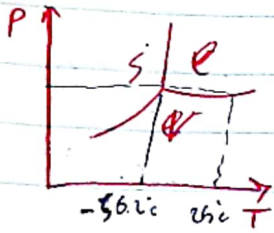 P
S l
v
-56.2°c 25°c T